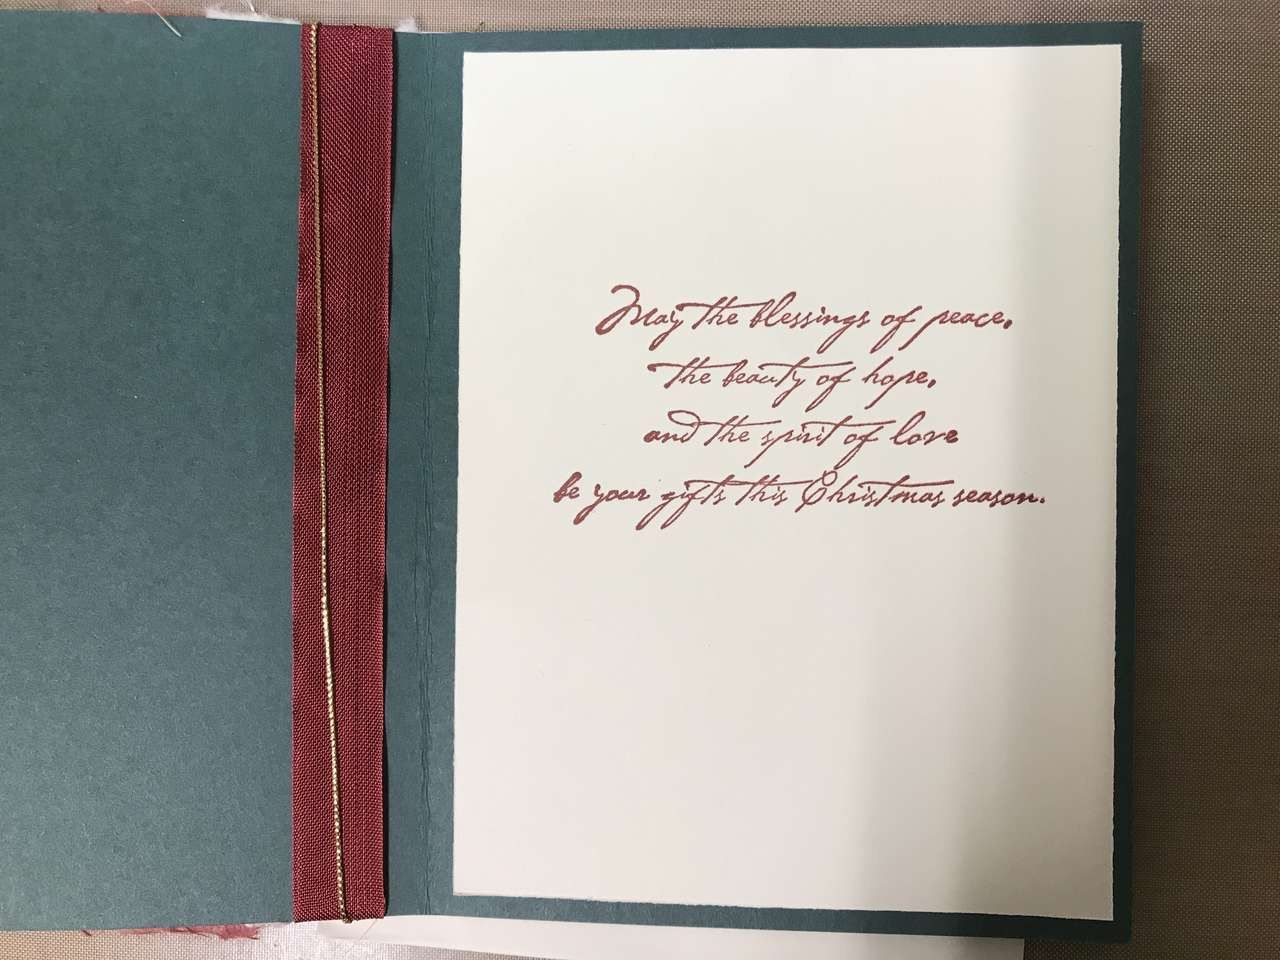 May the blessings of peace,
the beauty of hope,
and the spirit of love
be your gifts this Christmas season.